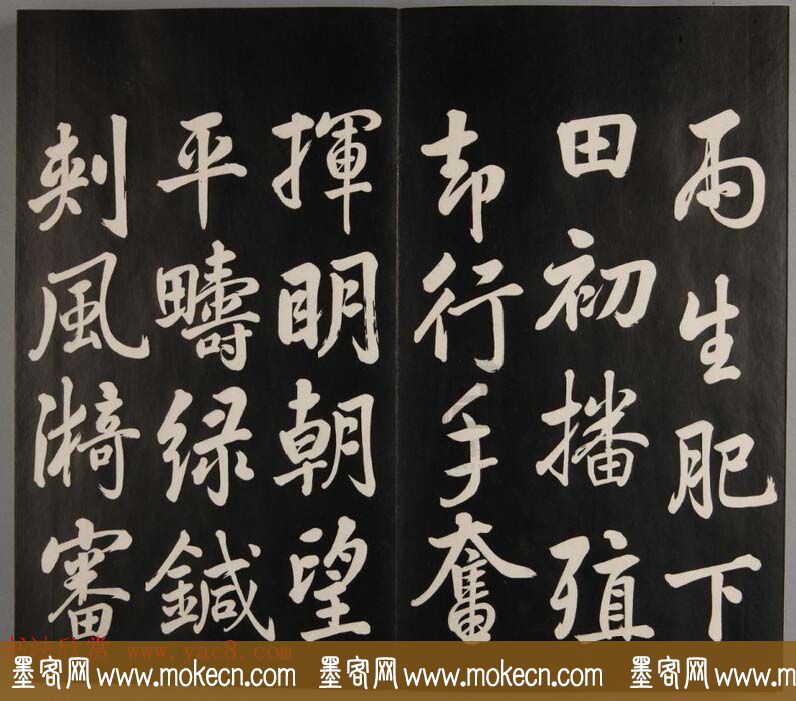 雨生肥下
田初播殖
却行手奮
揮明朝望
平疇绿鍼
刺風漪審
书法欣赏 www.yac8.com
墨客网 www.mokecn.com 墨客网 www.mokecn.com 墨客网 www.mokecn.com